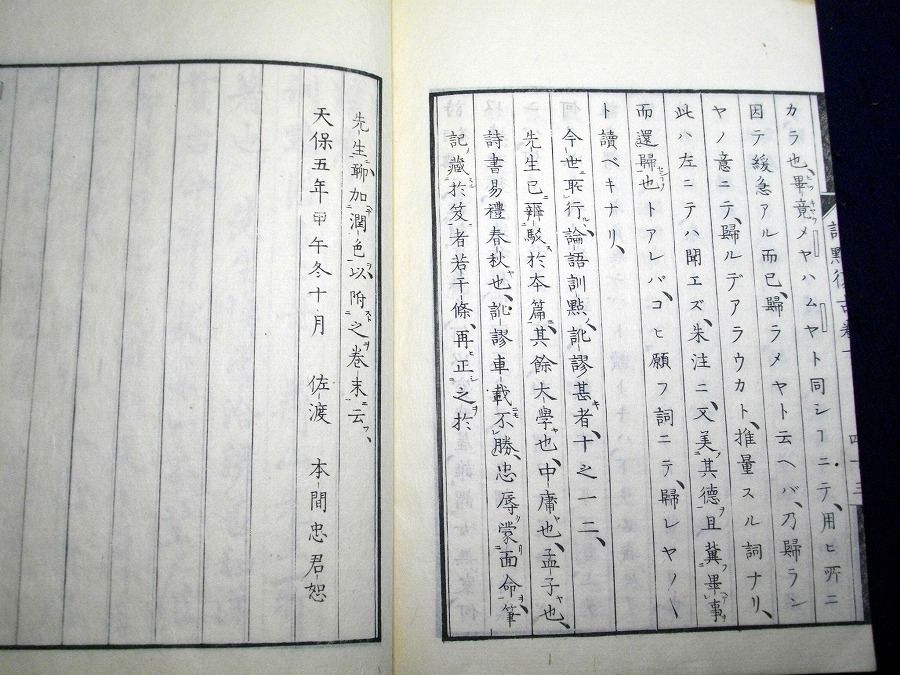 カラ也、畢竟メヤハムヤト同シヿニテ、用ヒ所ニ
因テ緩急アル而已、歸ラメヤト云ヘバ、乃歸ラン
ヤノ意ニテ、歸ルデアラウカト、推量スル詞ナリ、
此ハ左ニテハ聞エズ、朱注ニ又美其德且冀畢事
而還歸也トアレバ、コヒ願フ詞ニテ、歸レヤノ
ト讀ベキナリ、
今世所行論語訓點、訛謬甚者、十之一二、
先生已辨駁於本篇、其餘大學也、中庸也、孟子也、
詩書易禮春秋也、訛謬車載不勝、忠辱蒙面命、筆
記藏於笈者若干條、再正之於
先生聊加潤色、以附之卷末云、
天保五年甲午冬十月 佐渡 本間忠君恕